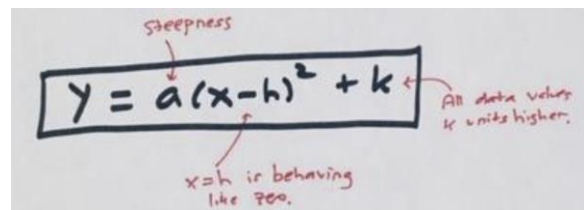 steepness
y = a(x-h)² + k
All data values
k units higher.
x=h is behaving
like zero.